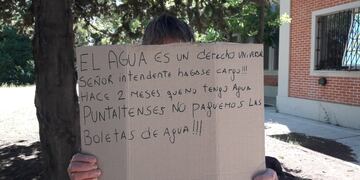 EL AGUA ES un derecho universal
SEÑOR intendente hagase cargo!!!
HACE 2 MESES que no tengo Agua
PUNTALTENSES NO paguemos LAS
Boletas de Agua!!!